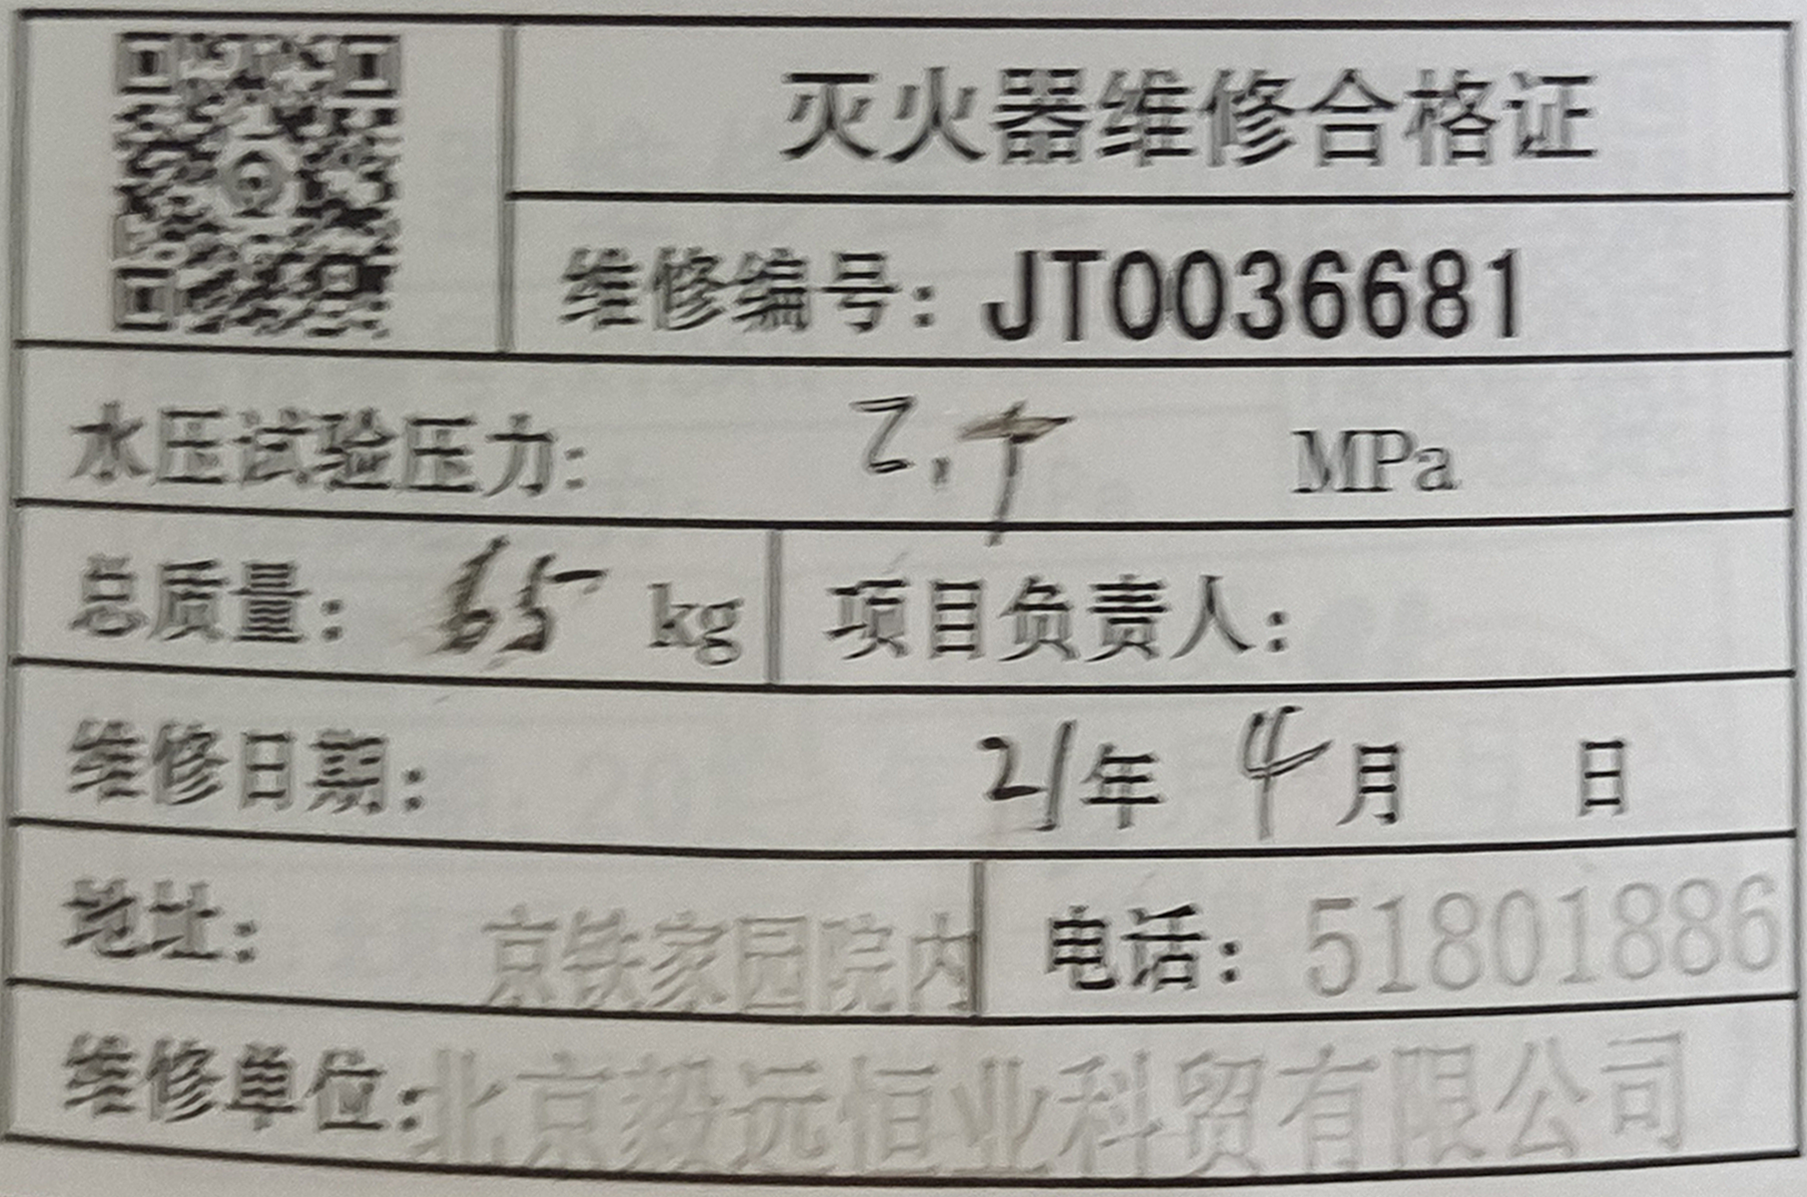 灭火器维修合格证
维修编号：JT0036681
水压试验压力： MPa
总质量：65 kg
项目负责人：
维修日期： 21年 4月 日
地址： 京铁家园院内
电话：51801886
维修单位：北京毅远恒业科贸有限公司